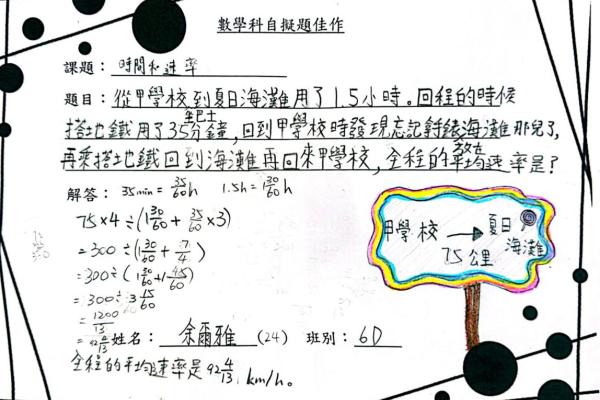 數學科自擬題佳作
課題：時間和速率
題目：從甲學校到夏日海灘坐巴士用了1.5小時。回程的時候
搭地鐵用了35分鐘，回到甲學校時發現忘記
再乘搭地鐵回到海灘再回來甲學校，全程的平均速率是？
解答：35min = 35/60 h 1.5h = 1 30/60 h
75×4÷(1 30/60 + 35/60 ×3)
=300÷(1 30/60 + 7/4)
=300÷(1 30/60 + 1 45/60)
=300÷3 15/60
=1200/13
=92 4/13
姓名：余爾雅 (24) 班別：6D
全程的平均速率是92 4/13 km/h。
甲學校 → 夏日海灘
75公里